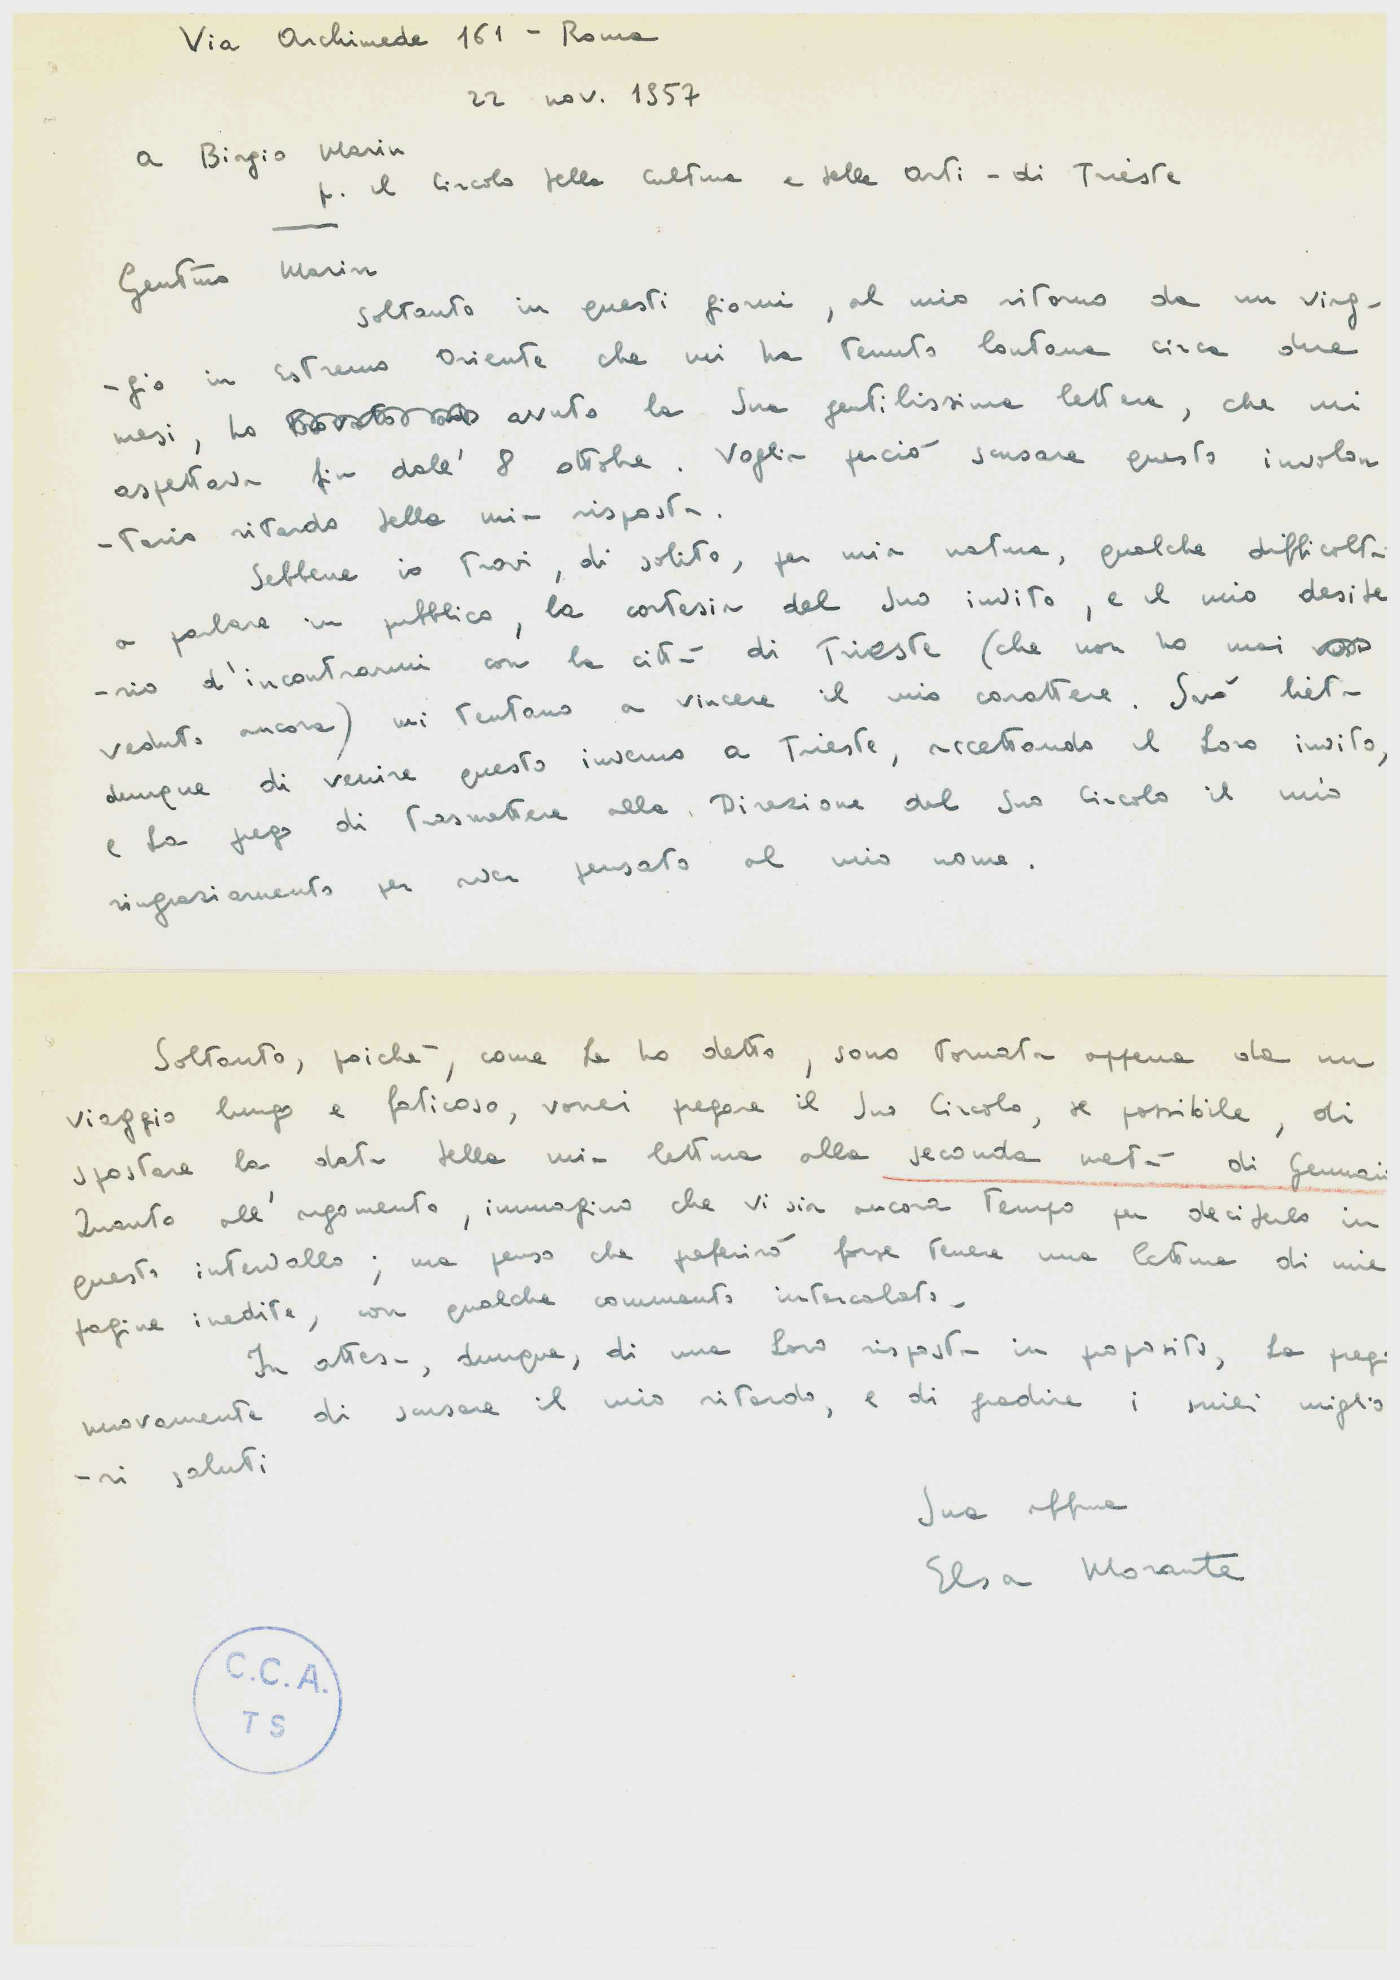 Via Archimede 161 - Roma
22 nov. 1957
a Biagio Marin
p. il Circolo della Cultura e delle Arti - di Trieste
Gentmo Marin
soltanto in questi giorni, al mio ritorno da un viag-
-gio in Estremo Oriente che mi ha tenuto lontana circa due
mesi, ho avuto la Sua gentilissima lettera, che mi
aspettava fin dall' 8 ottobre. Voglia perciò scusare questo involon
-tario ritardo della mia risposta.
Sebbene io trovi, di solito, per mia natura, qualche difficoltà
a parlare in pubblico, la cortesia del Suo invito, e il mio deside
-rio d'incontrarmi con la città di Trieste (che non ho mai
veduto ancora) mi tentano a vincere il mio carattere. Sarò lieta
dunque di venire questo inverno a Trieste, accettando il Loro invito,
e La prego di trasmettere alla Direzione del Suo Circolo il mio
ringraziamento per aver pensato al mio nome.
Soltanto, poiché, come Le ho detto, sono tornata appena da un
viaggio lungo e faticoso, vorrei pregare il Suo Circolo, se possibile, di
spostare la data della mia lettura alla seconda metà di Gennaio
Quanto all'argomento, immagino che vi sia ancora tempo per deciderlo in
questo intervallo; ma penso che preferirò forse tenere una lettura di mie
pagine inedite, con qualche commento intercalato.
In attesa, dunque, di una Loro risposta in proposito, La prego
nuovamente di scusare il mio ritardo, e di gradire i miei miglio
-ri saluti
Sua affma
Elsa Morante
C.C.A.
TS